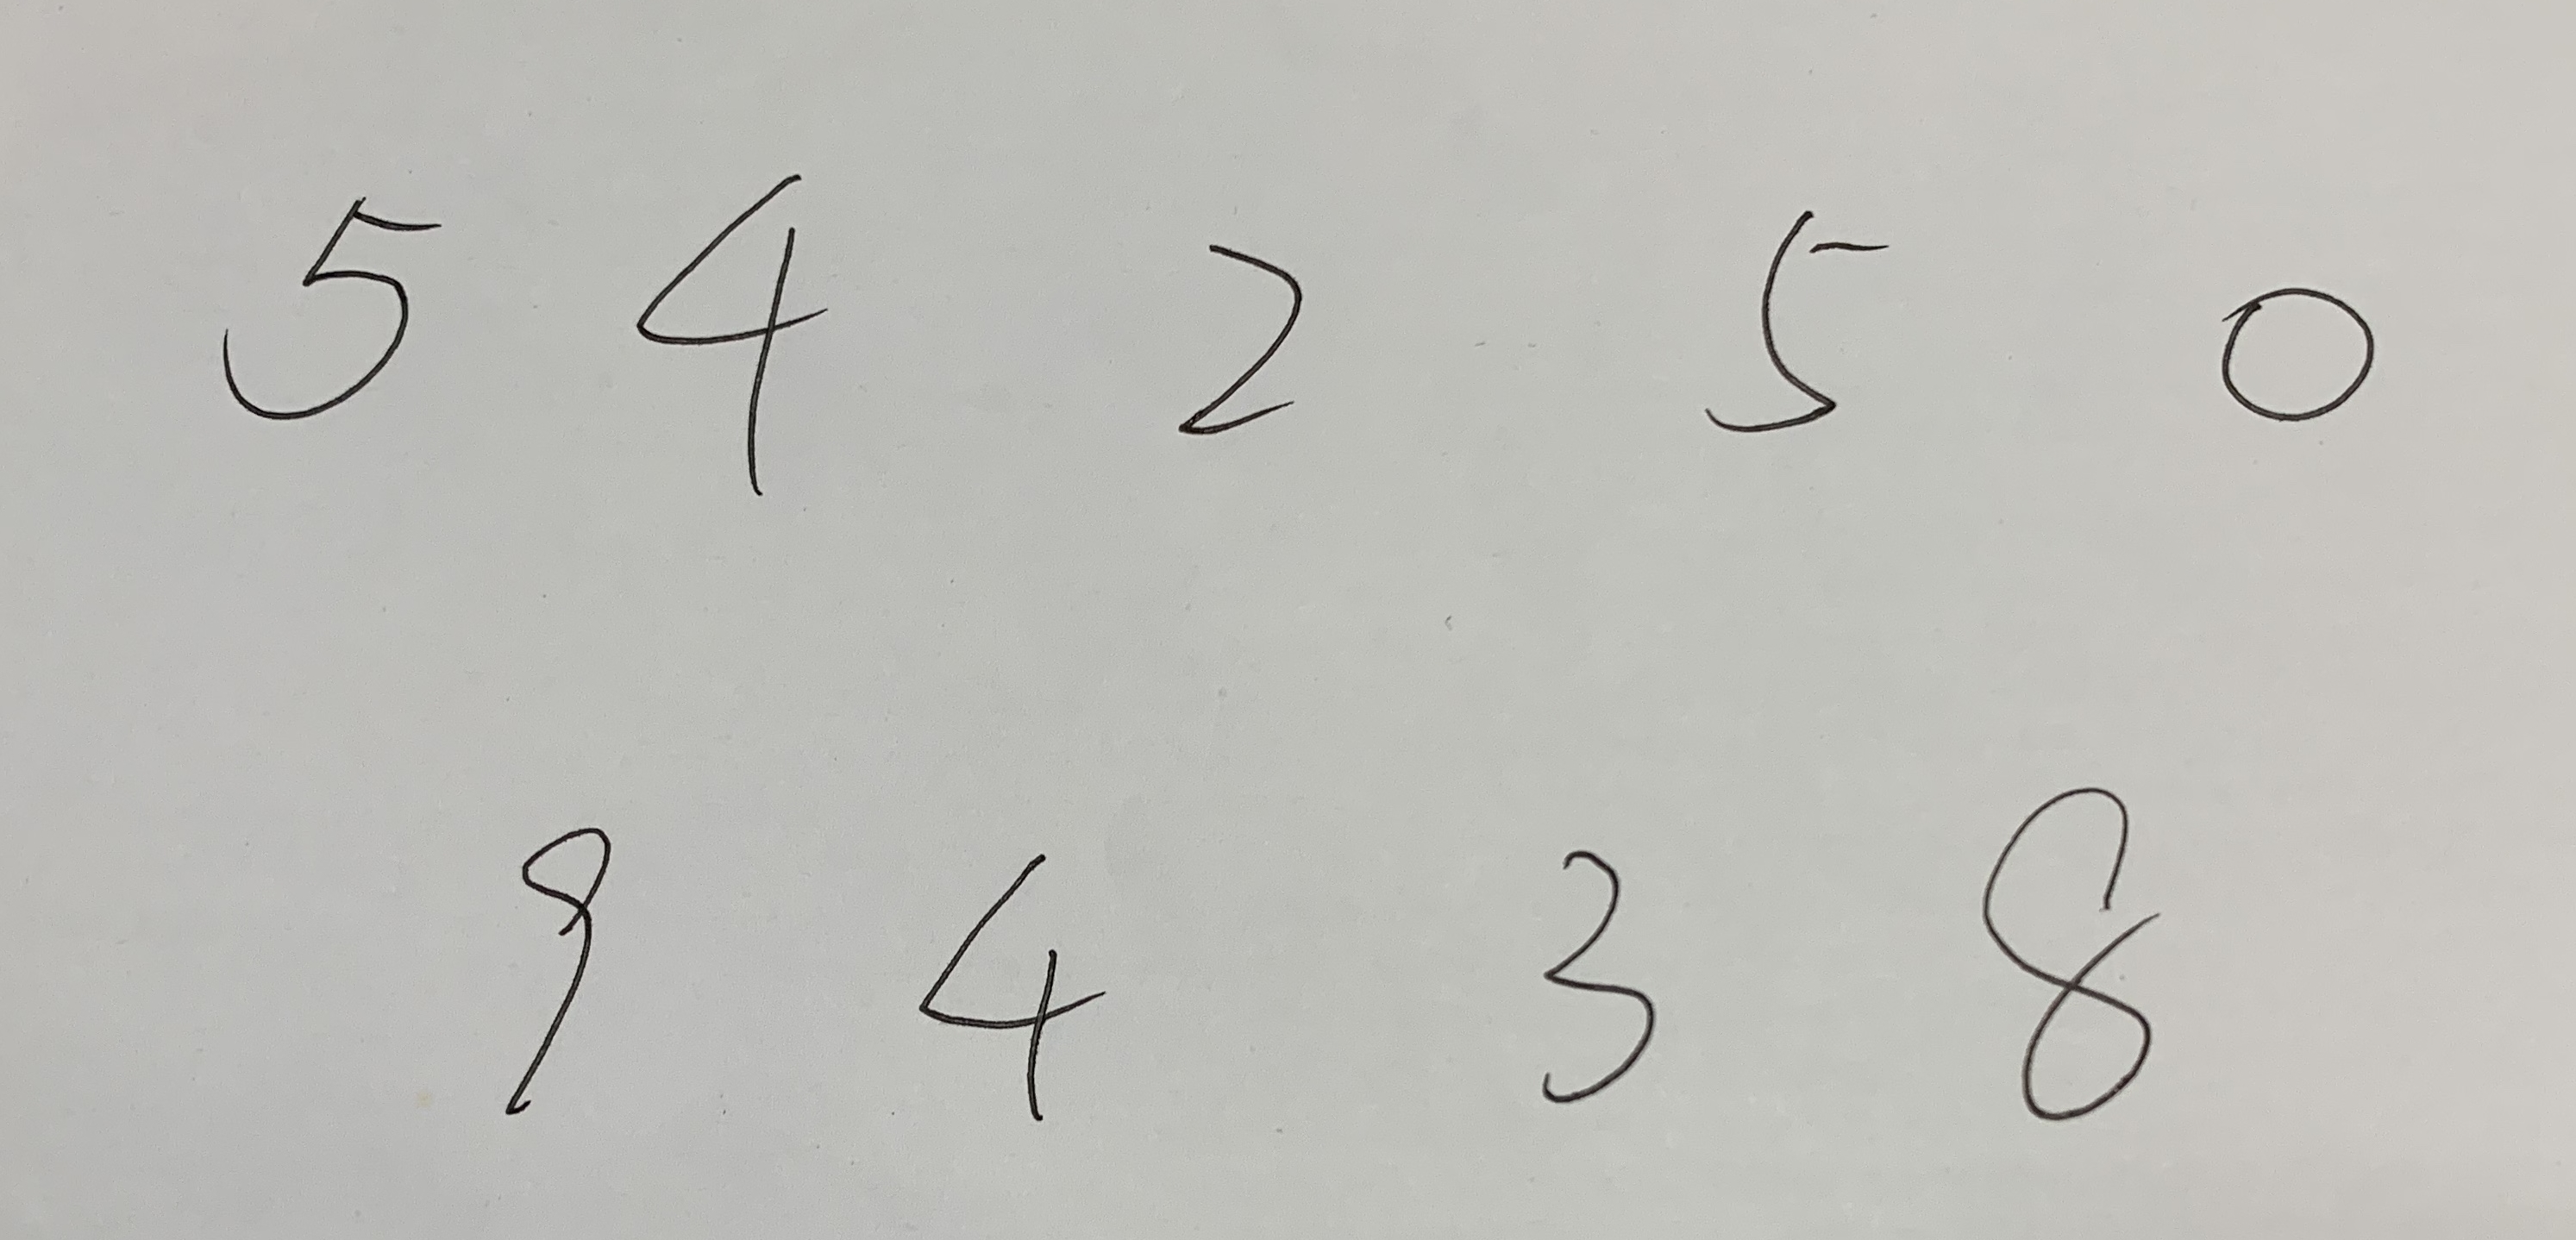 5 4 2 5 0
9 4 3 8